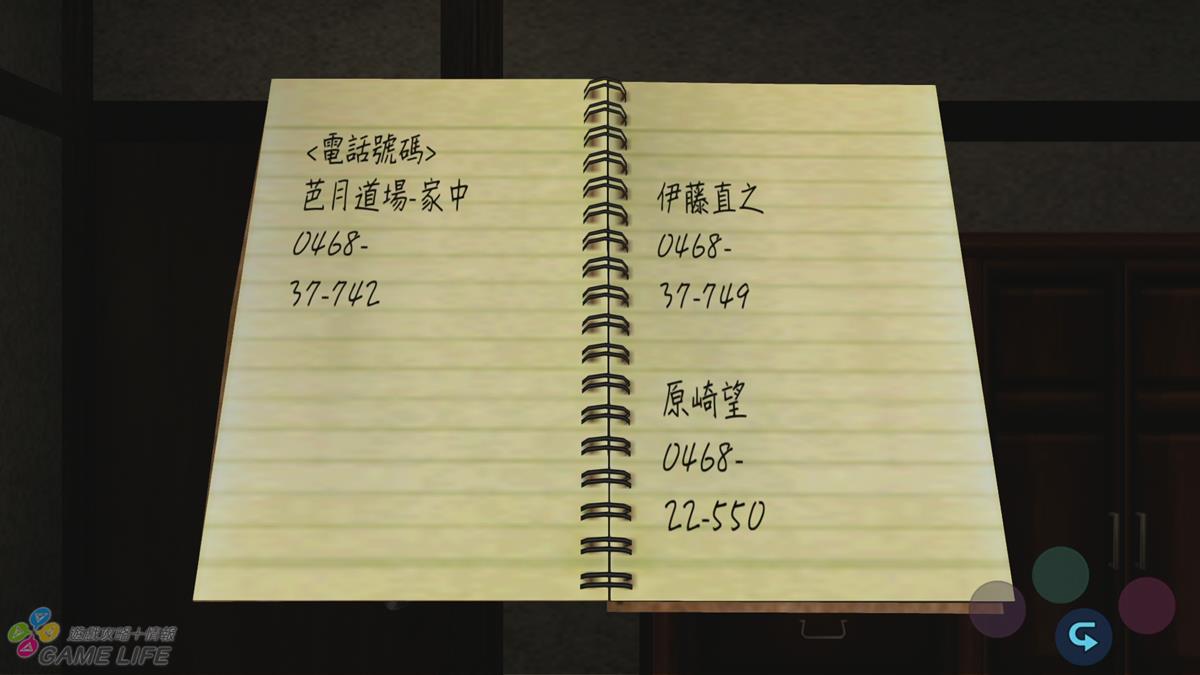 <電話號碼>
芭月道場-家中
0468-
37-742
伊藤直之
0468-
37-749
原崎望
0468-
22-550
遊戲攻略+情報
GAME LIFE